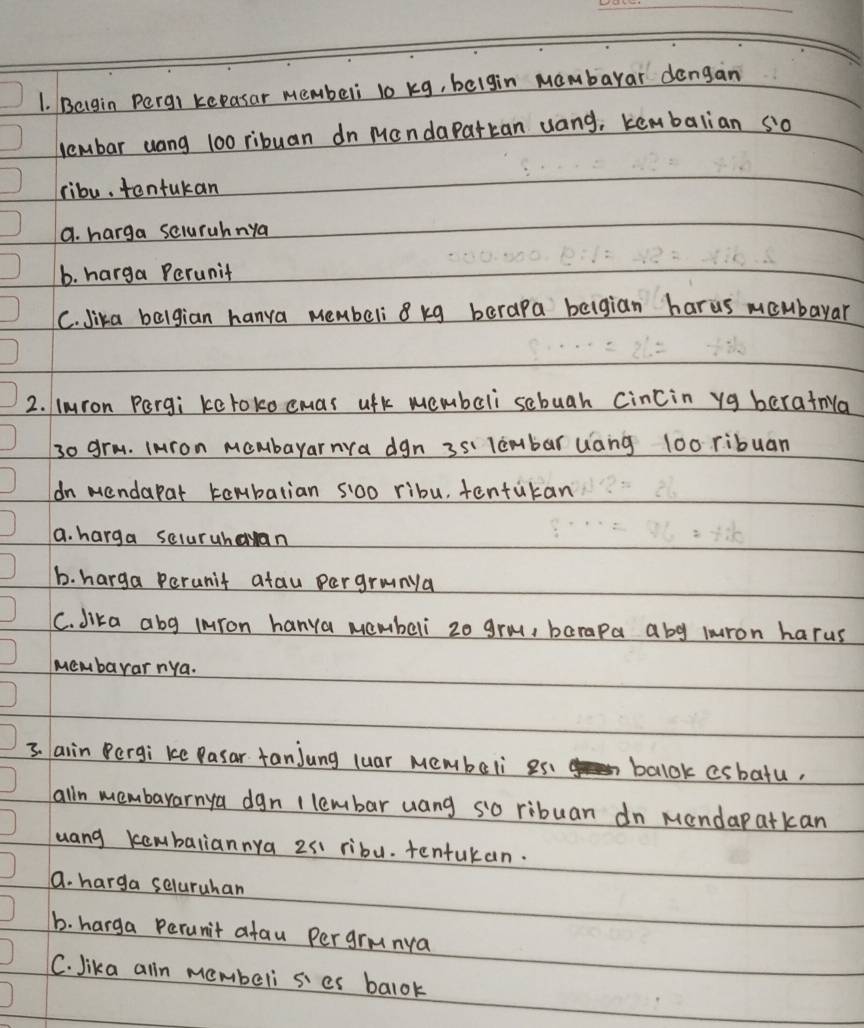 1. Belgin Pergi kepasar membeli 10 kg, belgin Mambayar dengan
lembar uang 100 ribuan dn Mendapatkan uang, kembalian 50
ribu. tentukan
a. harga seluruhnya
b. harga Perunit
C. Jika belgian hanya membeli 8 kg berapa belgian harus membayar
2. Imron Pergi ketoko emas utk membeli sebuah Cincin yg beratnya
30 grm. Imron Membayarnya dgn 35 lembar uang 100 ribuan
dn mendapat kembalian 500 ribu. tentukan
a. harga seluruhnyan
b. harga Perunit atau pergrmnya
C. Jika abg Imron hanya membeli 20 grm, berapa abg Imron harus
membayarnya.
3. alin Pergi ke Pasar tanjung luar membeli es balok esbatu.
alin membayarnya dgn 1 lembar uang 50 ribuan dn Mendapatkan
uang kembaliannya 25 ribu. tentukan.
a. harga seluruhan
b. harga Perunit atau Pergrmnya
C. Jika alin Membeli 5 es balok